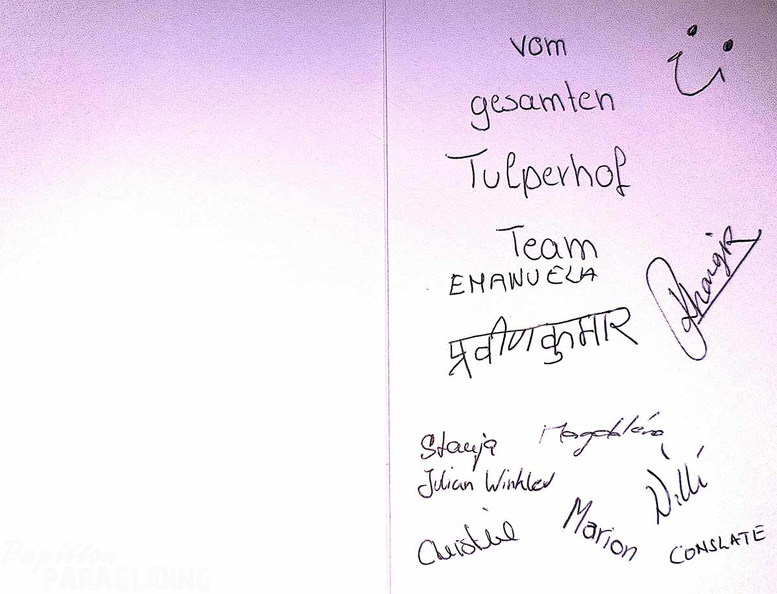 vom
gesamten
Tulperhof
Team
EMANUELA
प्रवीणकुमार
Stanja
Magdaléna
Julian Winkler
Willi
Christine
Marion
CONSLATE
Papillon
PARAGLIDING